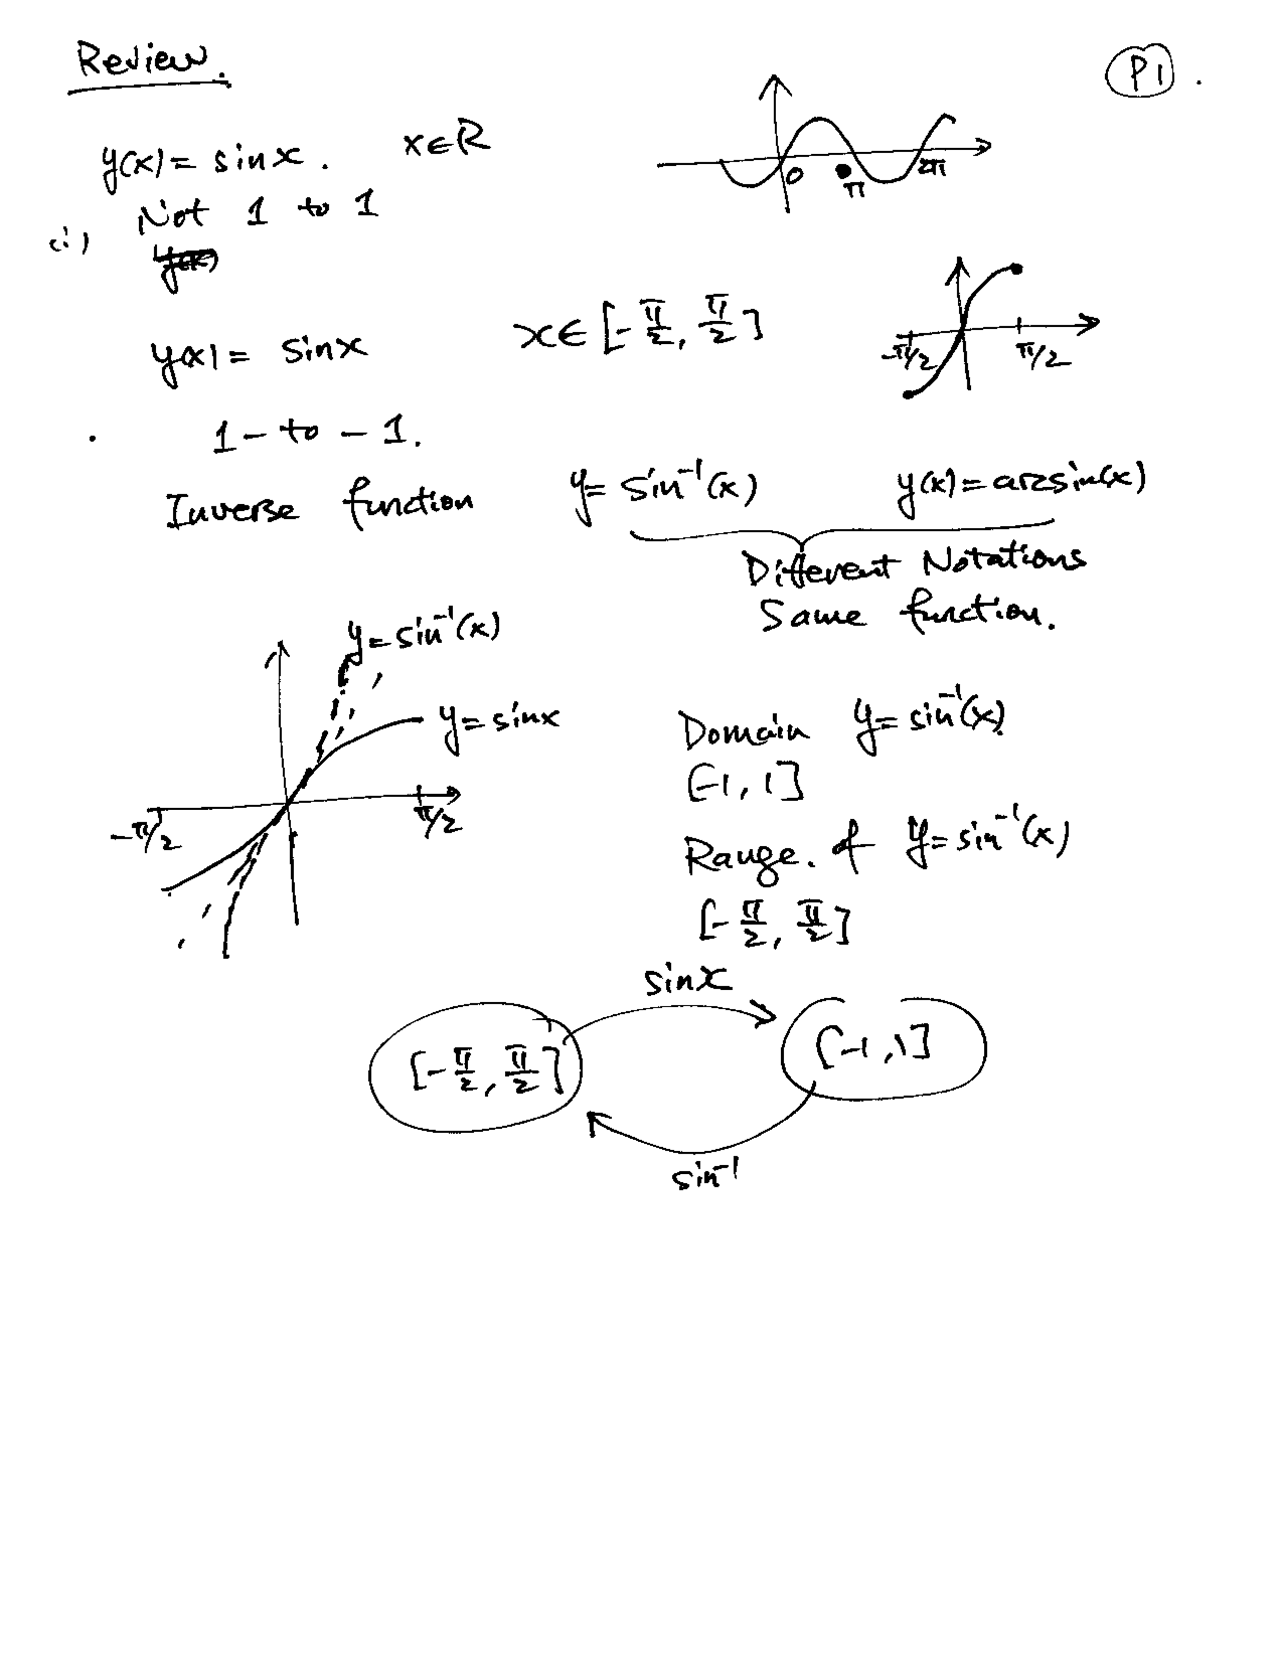 Review.
P1.
y(x) = sinx. x∈R
0 π 2π
(i) Not 1 to 1
y(x) = sinx x∈[-π/2, π/2]
-π/2 π/2
1-to-1.
Inverse function y = sin⁻¹(x) y(x) = arcsin(x)
Different Notations
Same function.
y = sin⁻¹(x)
y = sinx
-π/2 π/2
Domain y = sin⁻¹(x).
[-1, 1]
Range. of y = sin⁻¹(x)
[-π/2, π/2]
sinx
[-π/2, π/2] [-1, 1]
sin⁻¹